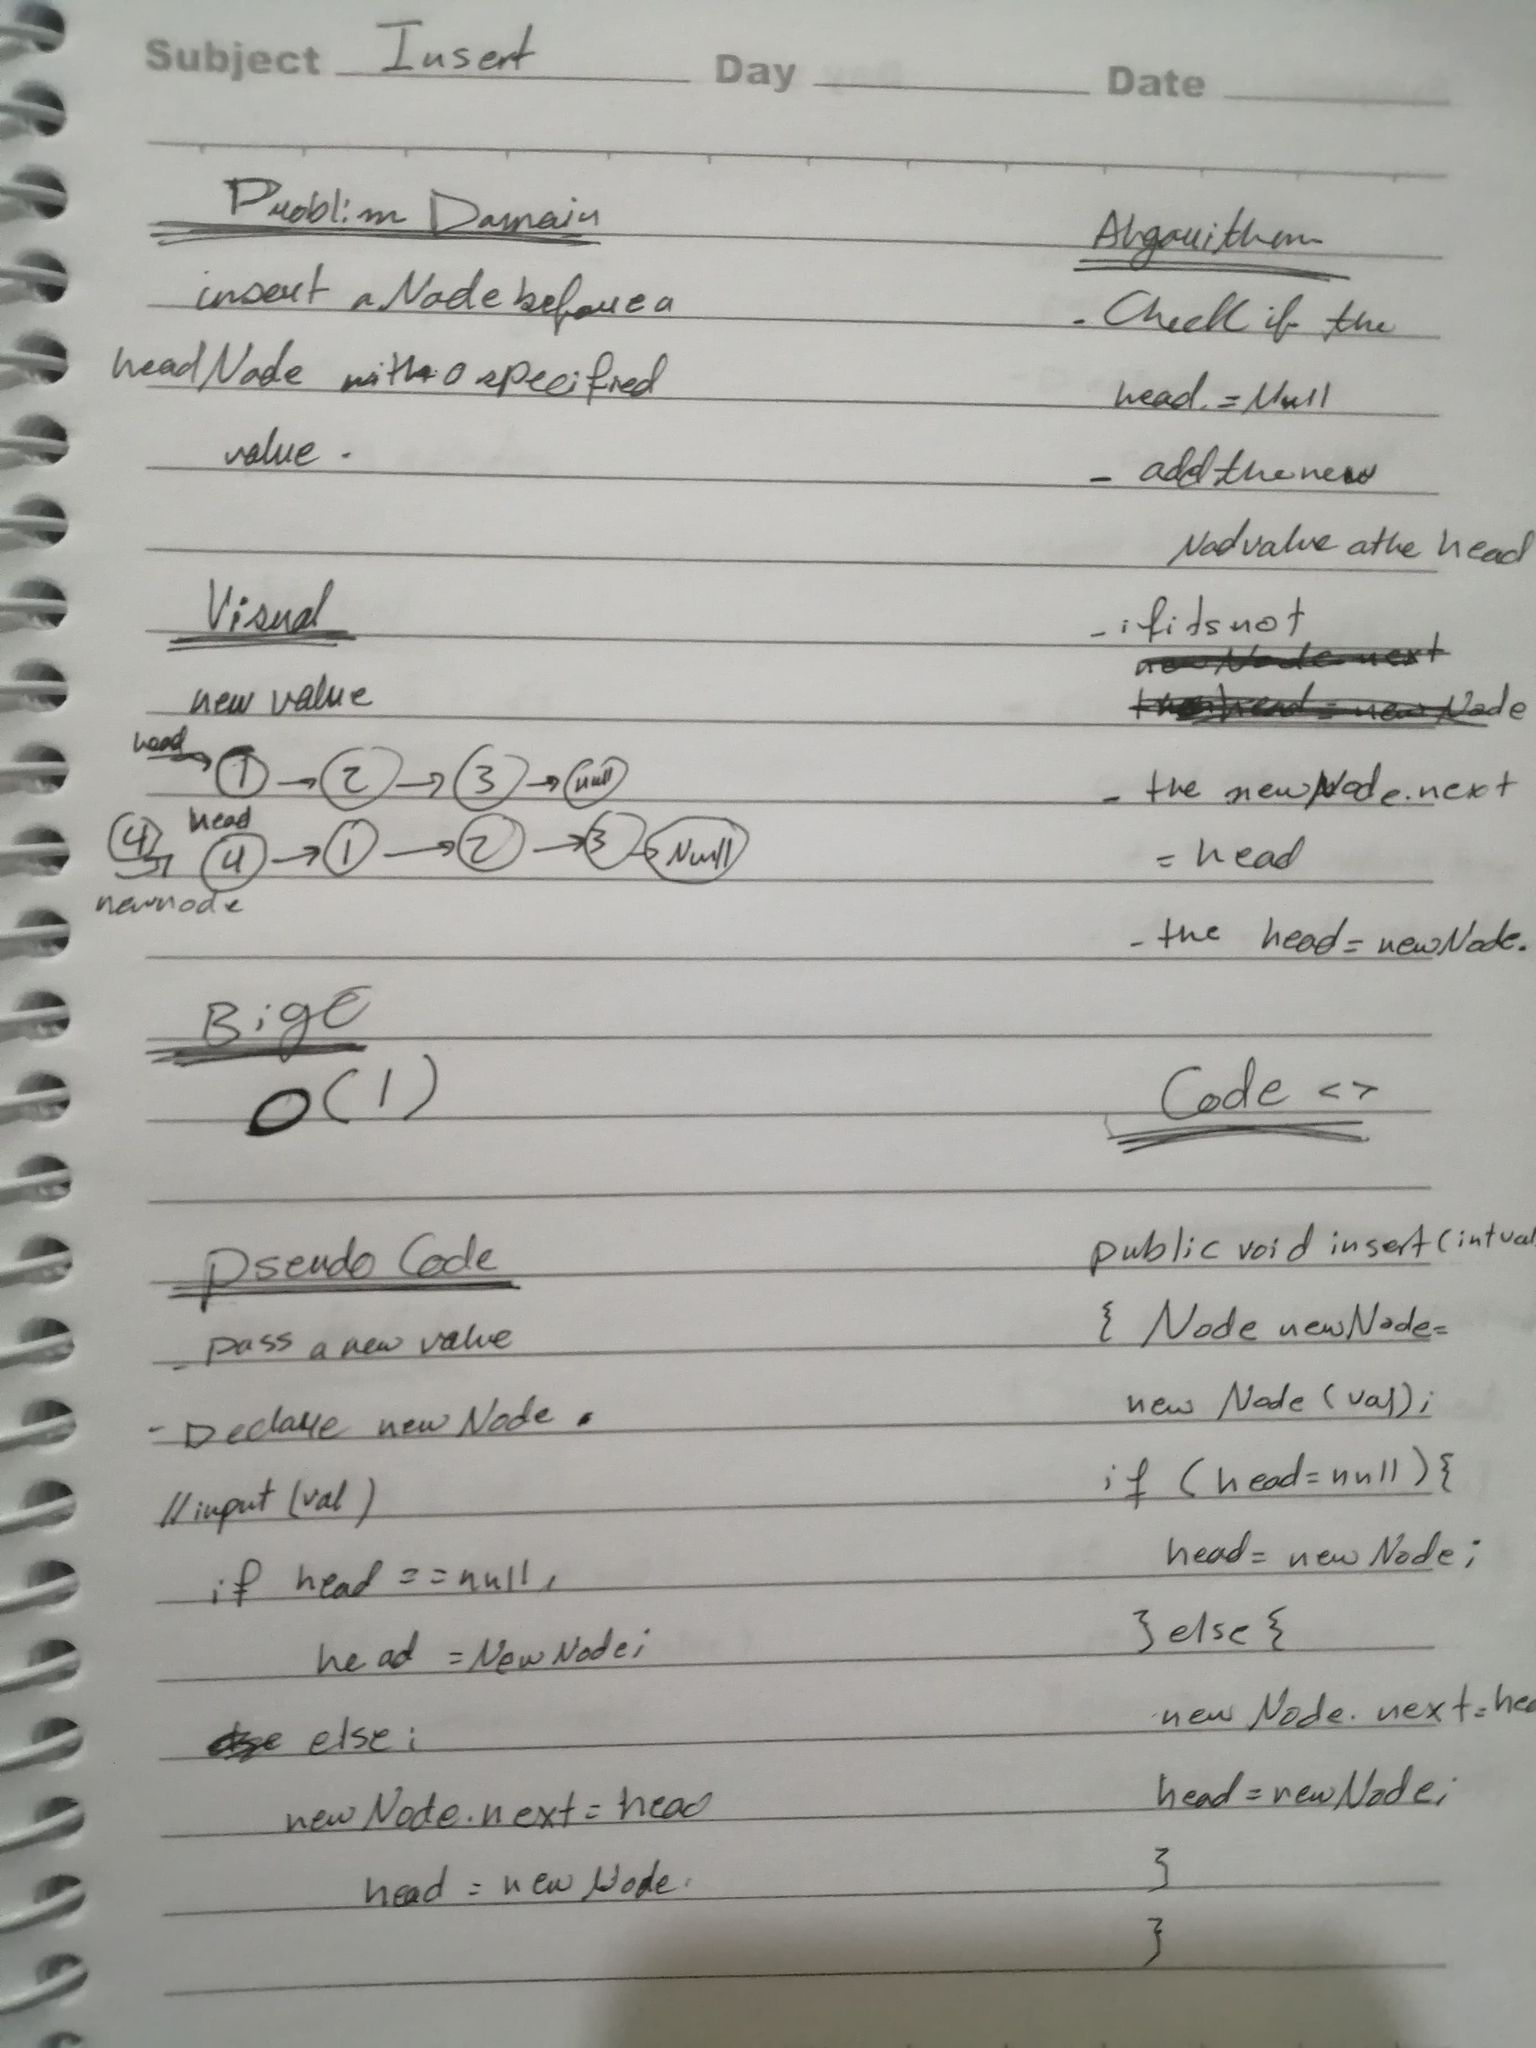 Subject Insert Day Date
Problim Domain
insert a Node before a
head Node with a specified
value.
Visual
new value
head
1 → 2 → 3 → null
4 head
4 → 1 → 2 → 3 → Null
newnode
Big O
O(1)
Pseudo Code
- pass a new value
- Declare newNode.
// input (val)
if head == null,
head = NewNode;
else:
newNode.next = head
head = newNode.
Algorithm
- Check if the
head = Null
- add the new
Nod value a the head
- if its not
new Node.next
head = new Node
- the newNode.next
= head
- the head = newNode.
Code <>
public void insert (int val
{ Node newNode=
new Node (val);
if (head=null){
head= newNode;
} else {
newNode. next = hea
head = newNode;
}
}